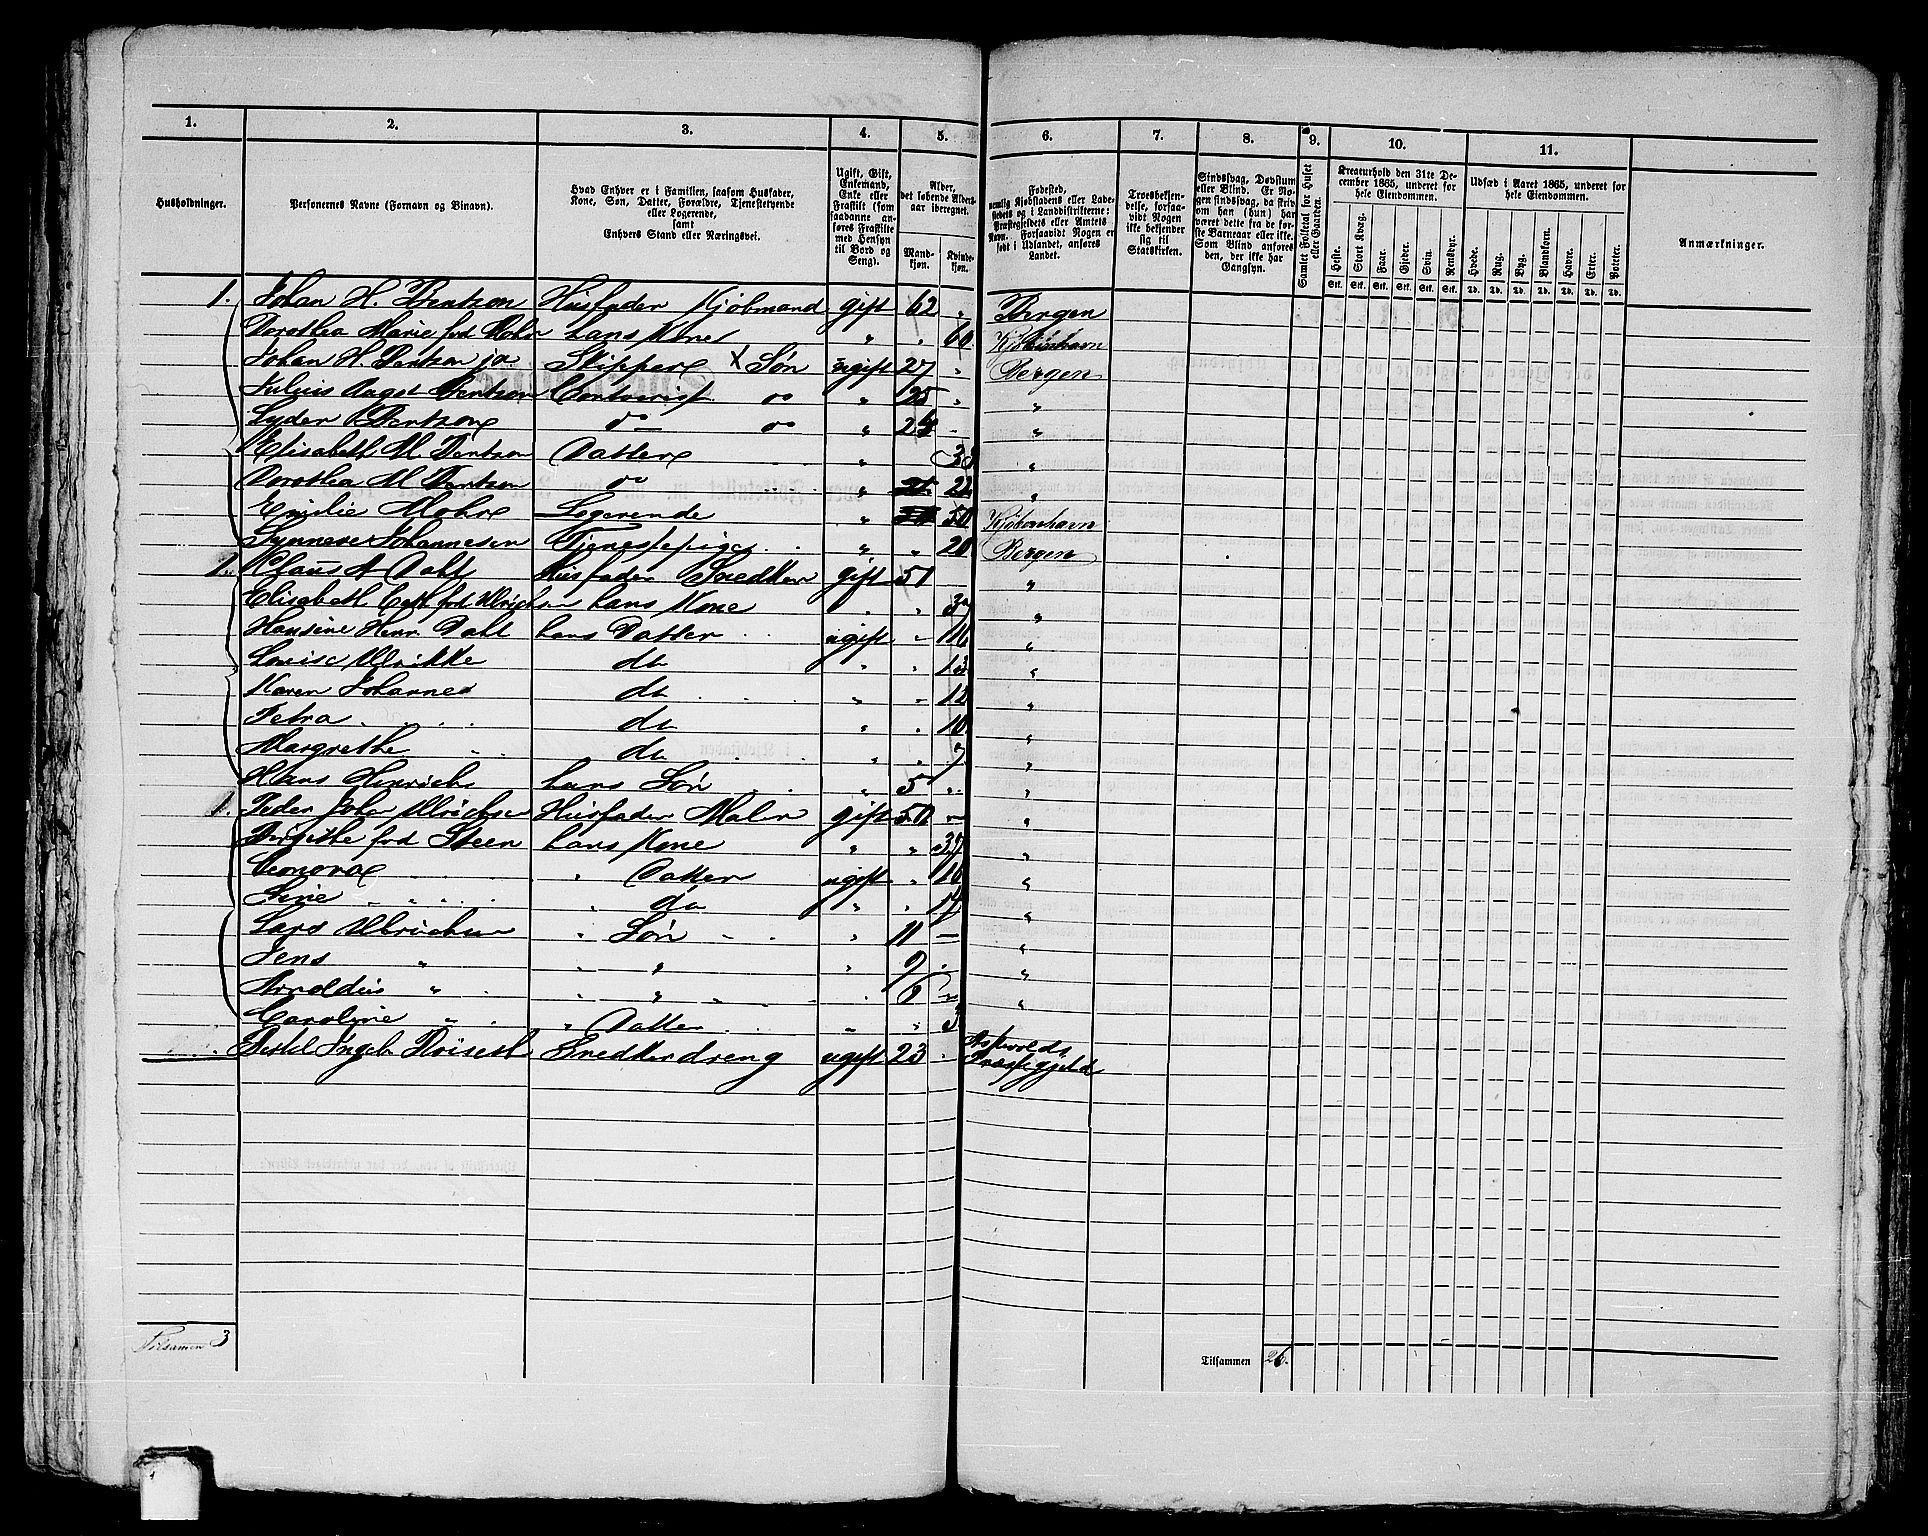 1. 2. 3. 4. 5. 6. 7. 8. 9. 10. 11.
Husholdninger.
Personernes Navne (Fornavn og Binavn).
Hvad Enhver er i Familien, saasom Husfader,
Kone, Søn, Datter, Forældre, Tjenestetyende
eller Logerende,
samt
Enhvers Stand eller Næringsvei.
Ugift, Gift,
Enkemand,
Enke eller
Fraskilt (som
saadanne an-
føres Fraskilte
med Hensyn
til Bord og
Seng).
Alder,
det løbende Alders-
aar iberegnet.
Mand-
kjøn.
Kvinde-
kjøn.
Fødested,
nemlig Kjøbstadens eller Lade-
stedets og i Landdistrikterne:
Præstegjeldets eller Amtets
Navn. Forsaavidt Nogen er
født i Udlandet, anføres
Landet.
Troesbekjen-
delse, forsaa-
vidt Nogen
ikke bekjender
sig til
Statskirken.
Sindssvag, Døvstum
eller Blind. Er No-
gen sindssvag, da skriv
om han (hun) har
været dette fra de før-
ste Barneaar eller ikke.
Som Blind anføres
den, der ikke har
Gangsyn.
Samlet Folketal for Huset
eller Gaarden.
Kreaturhold den 31te De-
cember 1865, underet for
hele Eiendommen.
Heste. Stort Kvæg. Faar. Gjeder. Svin. Rensdyr.
Stk. Stk. Stk. Stk. Stk. Stk.
Udsæd i Aaret 1865, underet for
hele Eiendommen.
Hvede. Rug. Byg. Blandkorn. Havre. Erter. Poteter.
Td. Td. Td. Td. Td. Td. Td.
Anmærkninger.
1. Johan H. Bentzon Husfader Kjøbmand gift 62 " Bergen
Dorothea Marie fød Mohr hans Kone " " 60 Kjøbenhavn
Johan H. Bentzon jr Skipper X Søn ugift 27 " Bergen
Julius August Bentzon Contorist do " 25 " "
Lyder Bentzon do do " 24 - "
Elisabeth M. Bentzon Datter " 33 "
Dorothea M Bentzon do " 22 "
Emilie Mohr Logerende " 50 Kjøbenhavn
Synneve Johannesen Tjenestepige " " 20 Bergen
1. Claus A Dahl Husfader Snedker gift 51 - "
Elisabeth Cath fød Ulrichsen hans Kone " " 37 "
Hansine Henr. Dahl hans Datter ugift " 16 "
Lovise Ulrikke do " " 13 "
Karen Johanne do " " 12 "
Petra do " " 10 "
Margrethe do " " 7 "
Hans Hinrichs hans Søn " 5 " "
1. Peder Johan Ulrichsen Husfader Maler gift 50 - "
Birgithe fød Steen hans Kone " " 39 "
Leonora " Datter ugift " 16 "
Sine " do " " 14 "
Lars Ulrichsen " Søn " 11 - "
Jens " " " " 9 - "
Arnoldus " " " " 6 - "
Caroline " " Datter " " 3
Snedkerdreng ugift 23 " Askevolds
Præstegjeld
Tilsamen 3
Tilsammen 26.